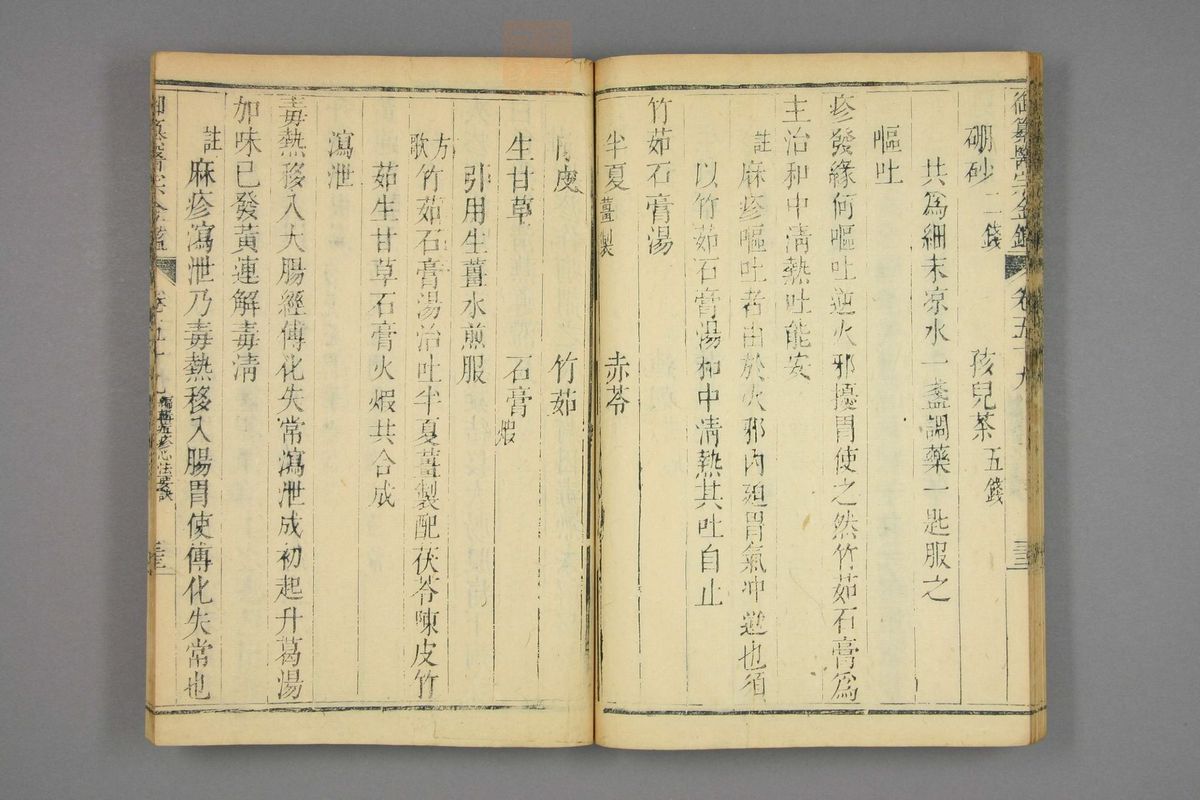 御纂醫宗金鑑 卷五十九 三三
硼砂二錢 孩兒茶五錢
共為細末凉水一盞調藥一匙服之
嘔吐
疹發緣何嘔吐逆火邪擾胃使之然竹茹石膏為
主治和中淸熱吐能安
註麻疹嘔吐者由於火邪內廹胃氣冲逆也須
以竹茹石膏湯和中淸熱其吐自止
竹茹石膏湯
半夏薑製 赤苓
陳皮 竹茹
生甘草 石膏煆
引用生薑水煎服
方歌竹茹石膏湯治吐半夏薑製配茯苓陳皮竹
茹生甘草石膏火煆共合成
瀉泄
毒熱移入大腸經傳化失常瀉泄成初起升葛湯
加味已發黃連解毒淸
註麻疹瀉泄乃毒熱移入腸胃使傳化失常也
御纂醫宗金鑑 卷五十九 編輯痘疹心法要訣 三三